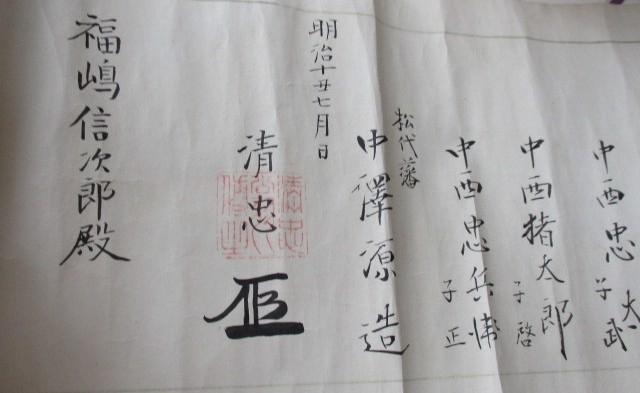 中西忠太
子武
中西猪太郎
子啓
中西忠兵衛
子正
松代藩
中澤源造
明治十丑七月日
清忠
福嶋信次郎殿